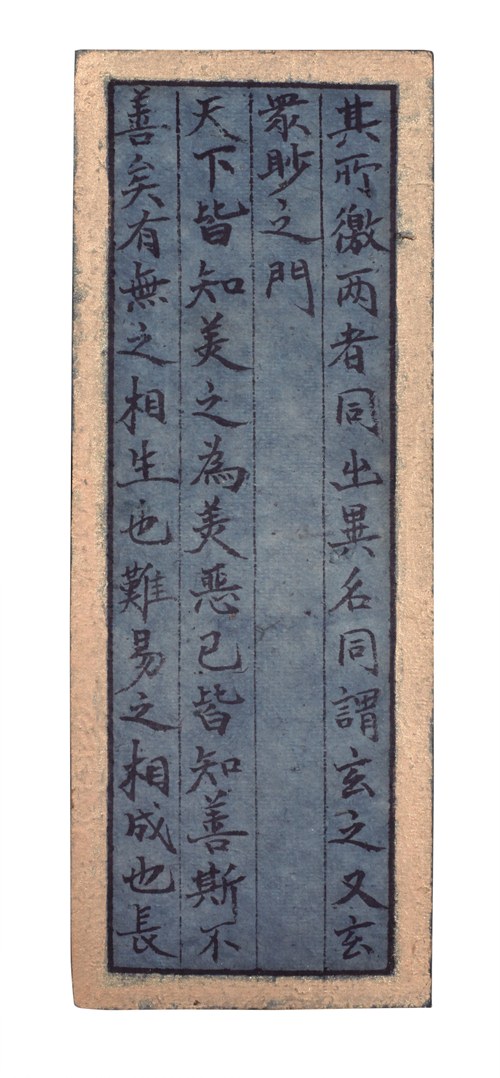 其所徼两者同出異名同謂玄之又玄
眾眇之門
天下皆知美之為美惡已皆知善斯不
善矣有無之相生也難易之相成也長